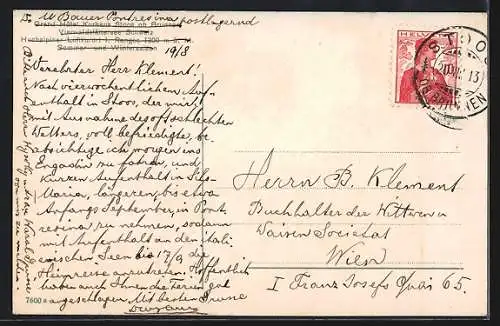 M Bauer Pontresina postlagernd
Grand Hotel Kurhaus Stoos ob Brunnen
Vierwaldstättersee Schweiz
Hochalpiner Luftkurort I. Ranges 1300 m ü. M.
Sommer- und Wintersaison
19/8
Verehrter Herr Klement!
Nach vierwöchentlichem Auf-
enthalt in Stoos, der mich
mit Ausnahme des oft schlechten
Wetters, voll befriedigte, be-
absichtige ich morgen ins
Engadin zu fahren, und
kurzen Aufenthalt in Sils-
Maria, längeren, bis etwa
Anfangs September, in Pont-
resina, zu nehmen, sodann
mit Aufenthalt an den itali-
enischen Seen bis 17/9 die
Heimreise anzutreten. Hoffentlich
haben auch Ihnen die Ferien gut
angeschlagen. Mit besten Grusse
7600 a
HELVETIA
STOOS
OB BRUNNEN
Herrn B. Klement
Buchhalter der Wittwen u
Waisen Societät
Wien
I Franz Josefs Quai 65.